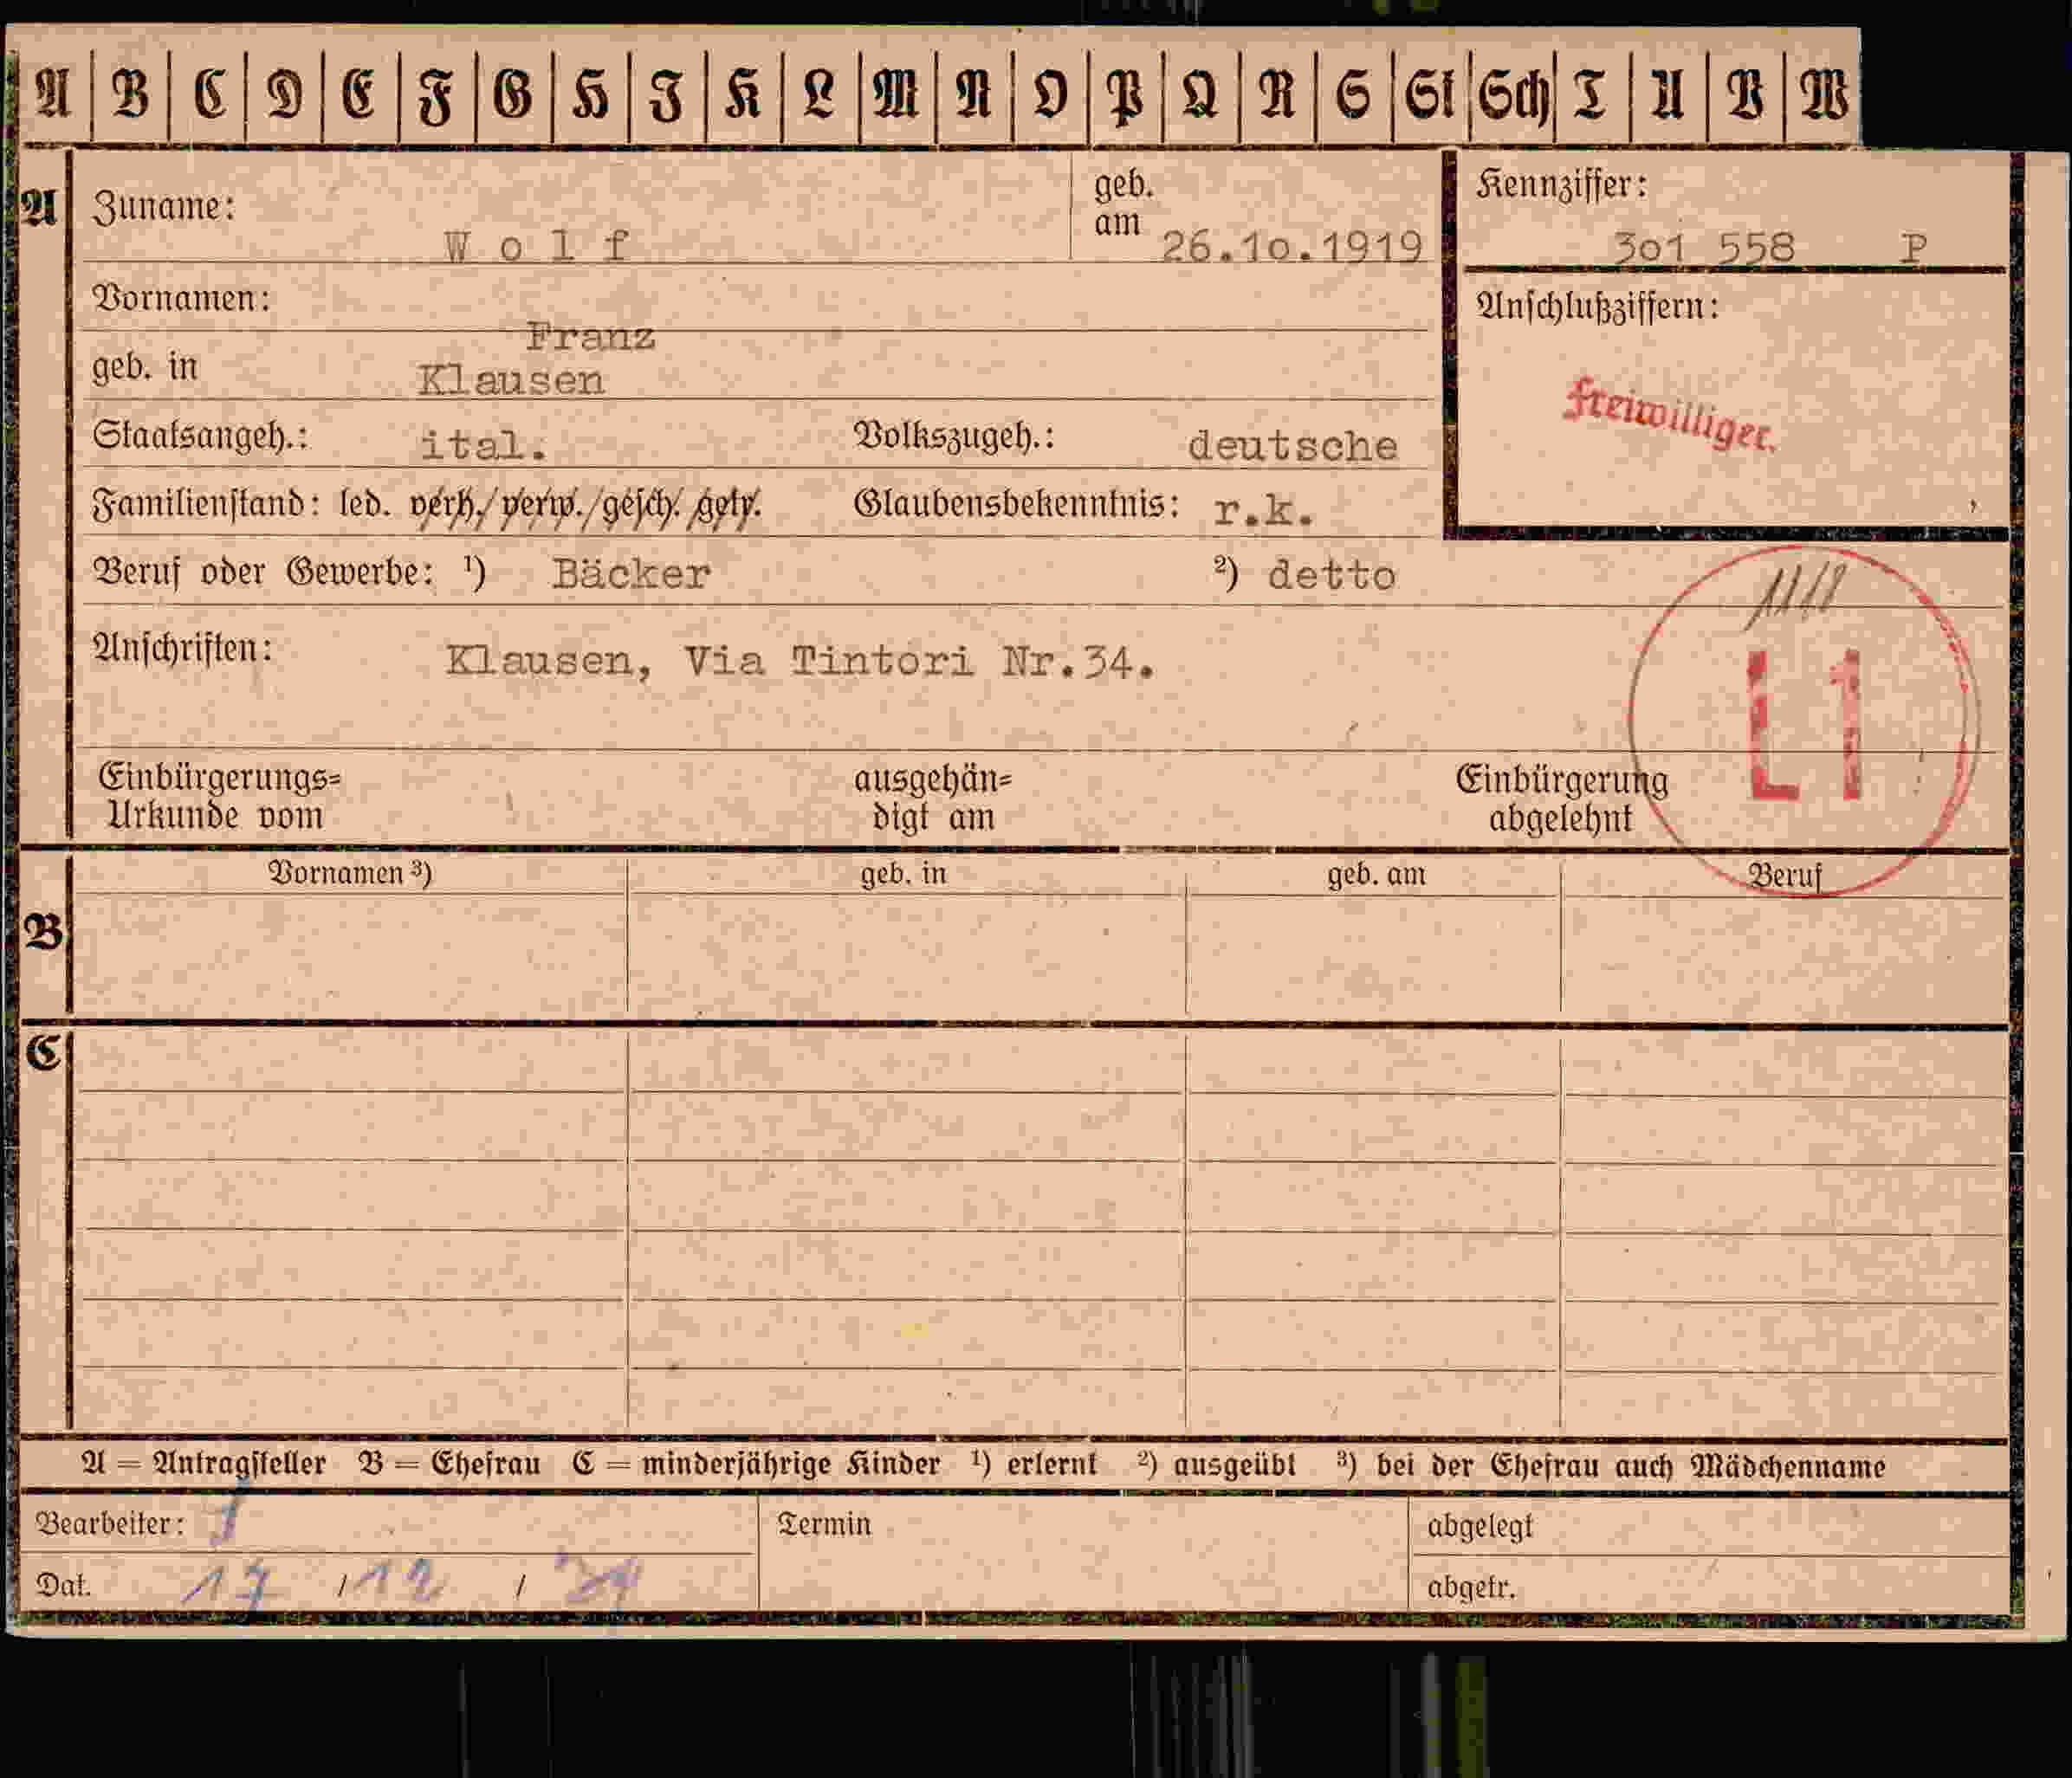 A B C D E F G H I K L M N O P Q R S St Sch T U V W
A Zuname: W o l f geb. am 26.1o.1919 Kennziffer: 3o1 558 P
Vornamen: Franz Anschlußziffern:
geb. in Klausen
Freiwilliger.
Staatsangeh.: ital. Volkszugeh.: deutsche
Familienstand: led. verh./verw./gesch. getr. Glaubensbekenntnis: r.k.
Beruf oder Gewerbe: ¹) Bäcker ²) detto
11/8
Anschriften: Klausen, Via Tintori Nr.34.
L1
Einbürgerungs= ausgehän= Einbürgerung
Urkunde vom digt am abgelehnt
Vornamen ³) geb. in geb. am Beruf
B
C
A = Antragsteller B = Ehefrau C = minderjährige Kinder ¹) erlernt ²) ausgeübt ³) bei der Ehefrau auch Mädchenname
Bearbeiter: Termin abgelegt
Dat. 17 / 12 / abgetr.